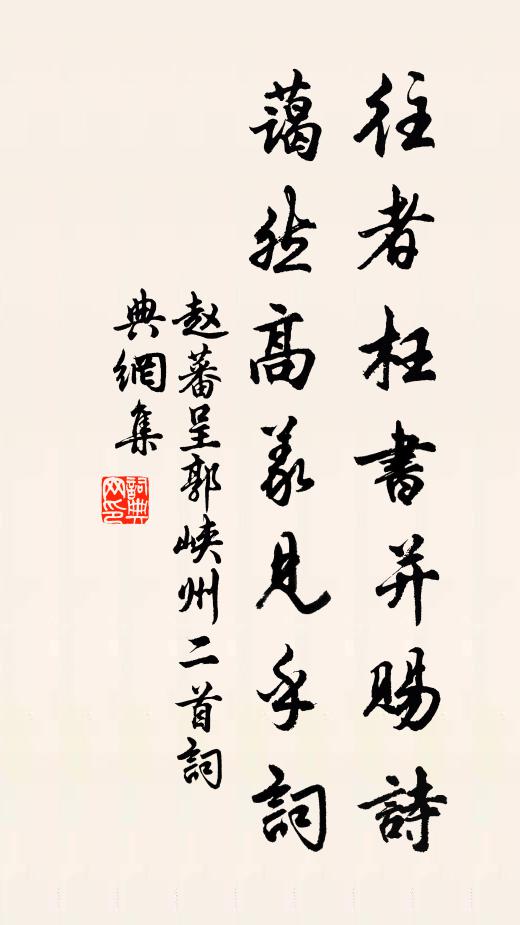 往者枉書并賜詩
藹然高義見乎詞
赵蕃呈郭峽州二首詞
典網集
詞典網印